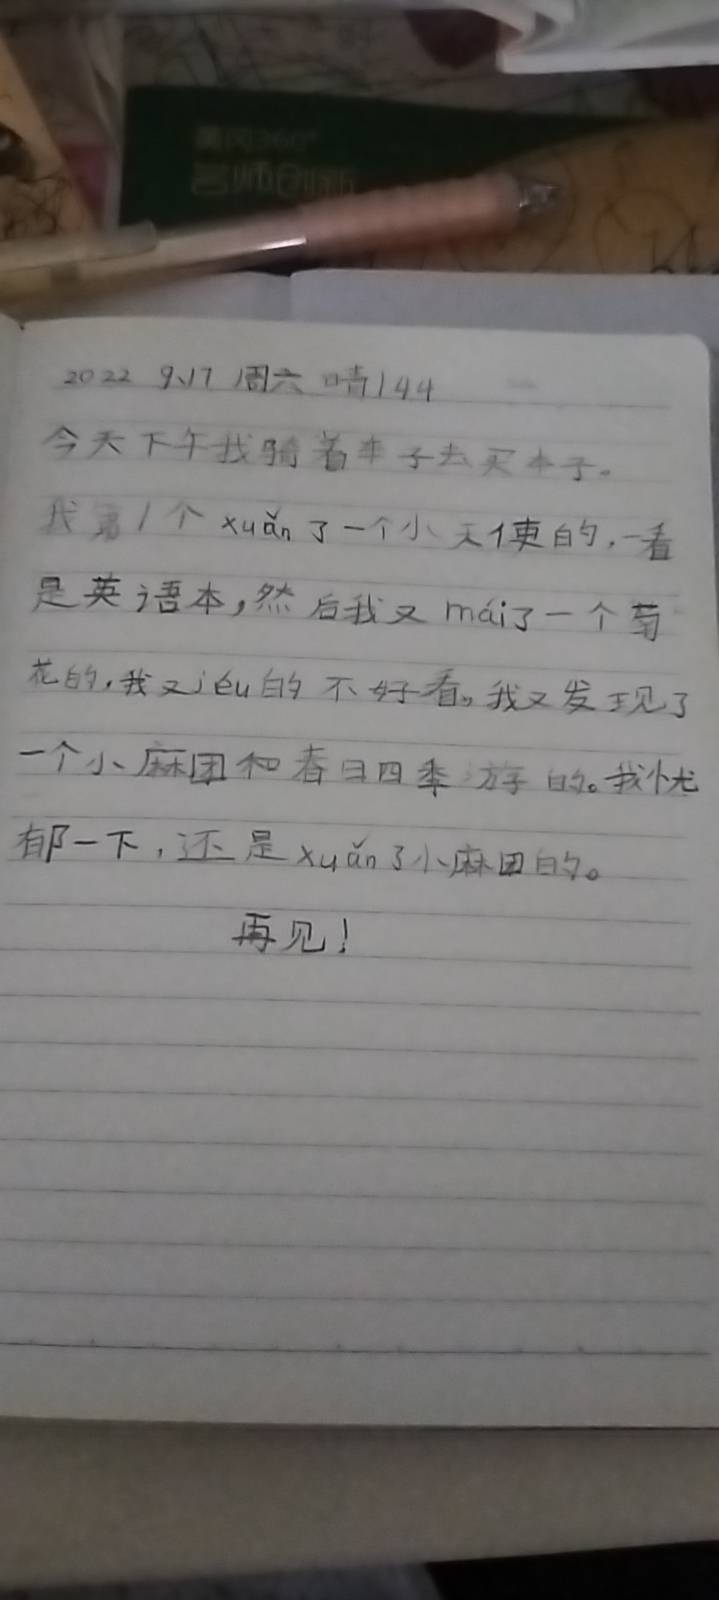 黄冈360°
名师创新
2022 9.17 周六 晴144
今天下午我骑着车子去买本子。
我第1个xuǎn了一个小天使的,一看
是英语本,然后我又mái了一个菊
花的,我又jéu的不好看。我又发现了
一个小麻团和春日四季游的。我忧
郁一下,还是xuǎn了小麻团的。
再见!